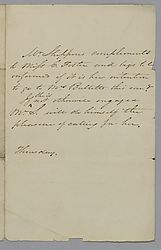 Mr Skippins compliments
to Miss E. Foster and begs to be
informed if it is her intention
to go to Mrs Bullitts this eveng
if not otherwise engaged
Mr S. will do himself the
pleasure of calling for her.
Thursday.